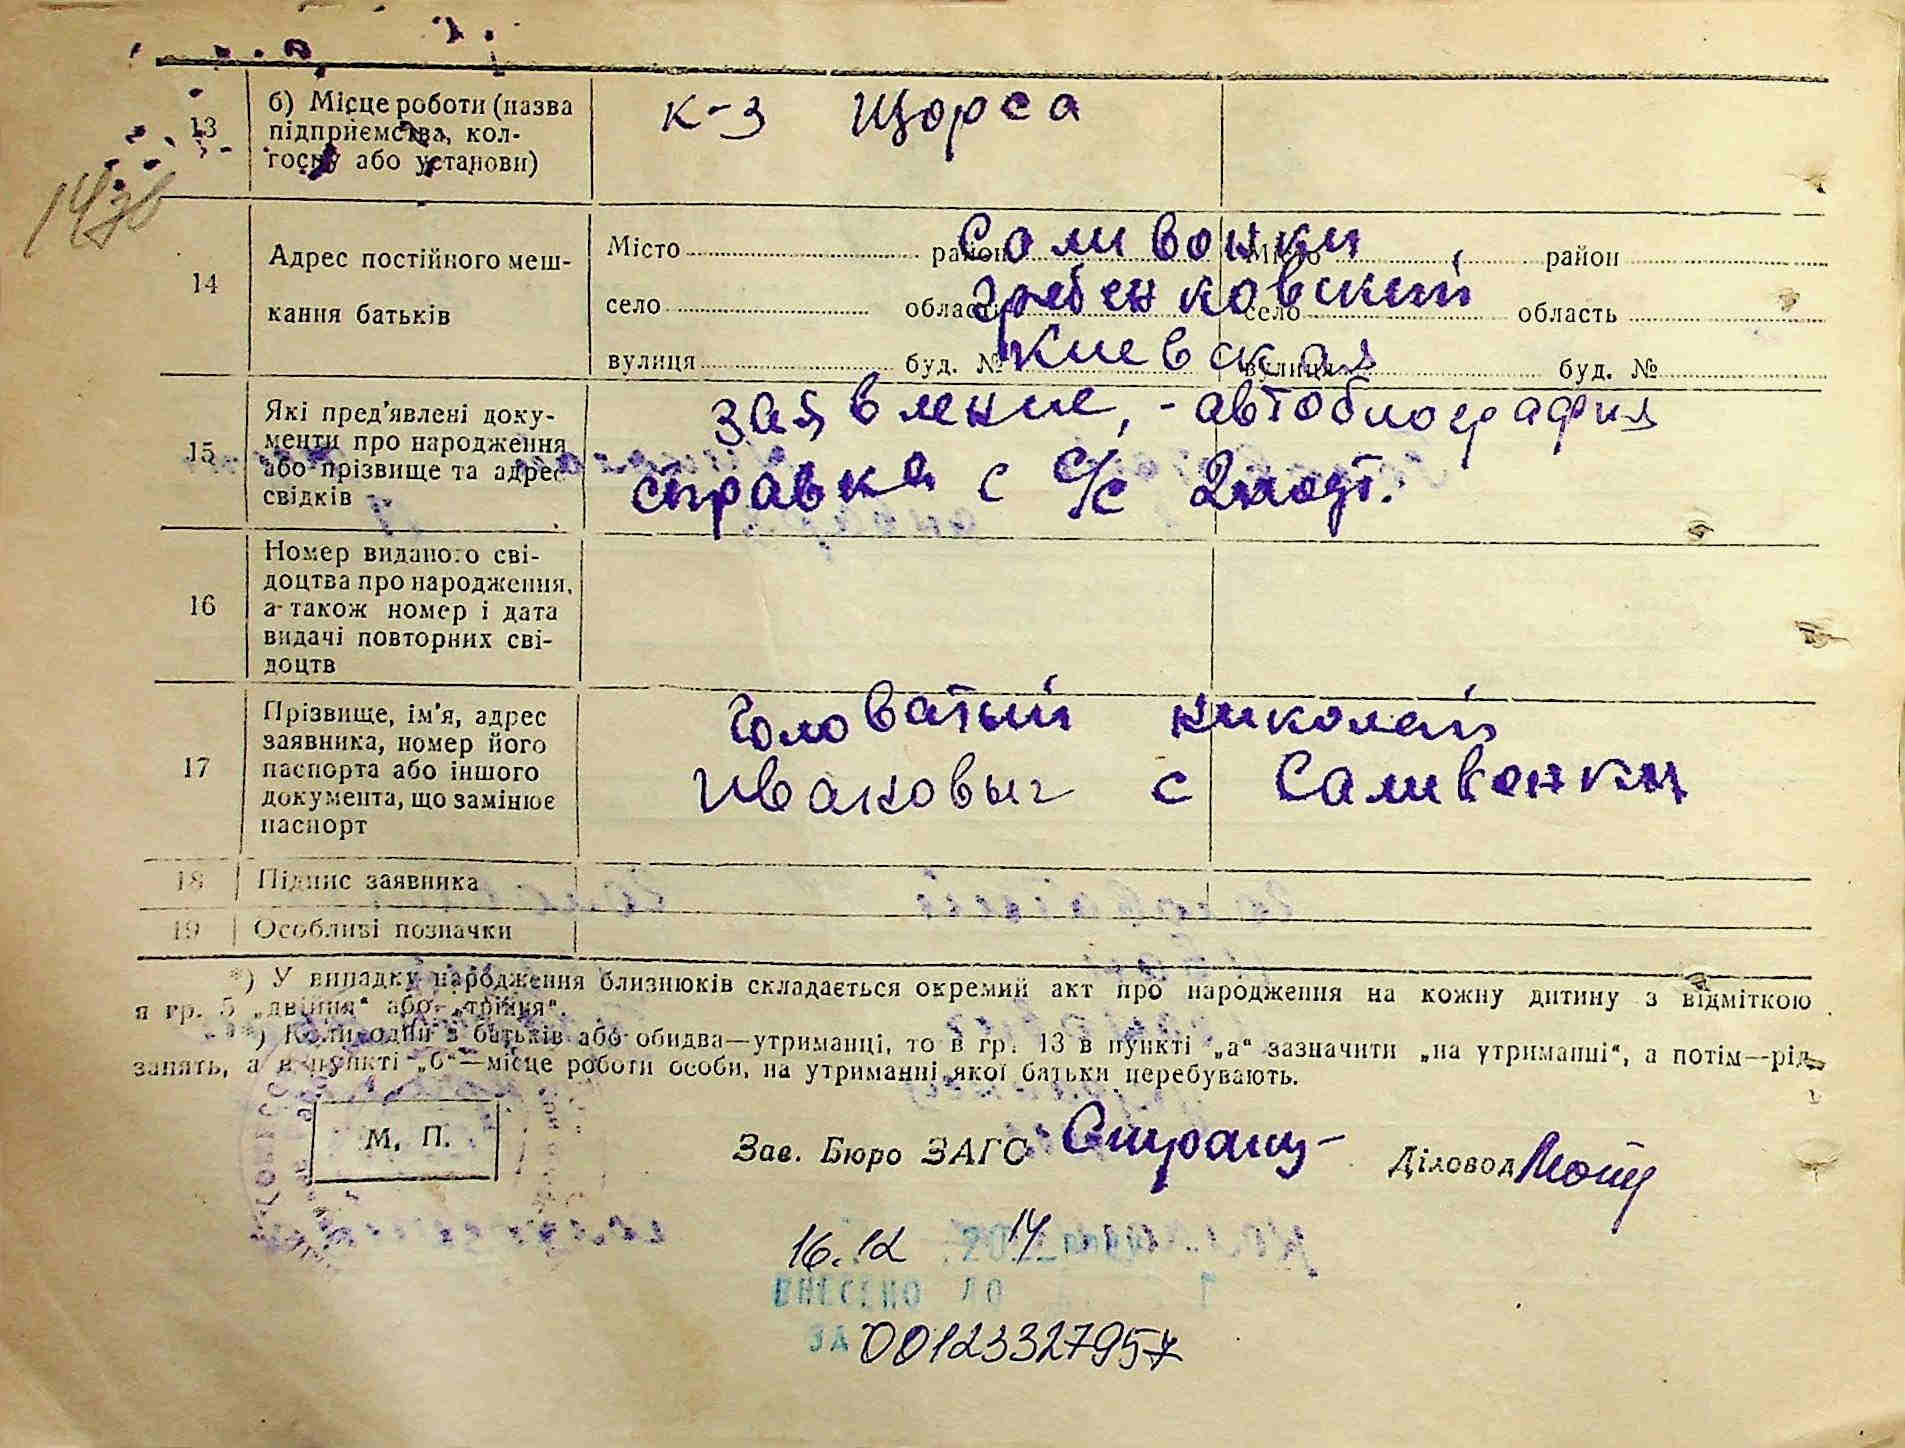 13 б) Місце роботи (назва підприємства, колгоспу або установи) к-з Щорса
14 Адрес постійного мешкання батьків
Місто район Саливонки Місто район
село область Гребенковский село область
вулиця буд. № Киевская вулиця буд. №
15 Які пред'явлені документи про народження або прізвище та адрес свідків
заявление, - автобиография
справка с с/с
16 Номер виданого свідоцтва про народження, а також номер і дата видачі повторних свідоцтв
17 Прізвище, ім'я, адрес заявника, номер його паспорта або іншого документа, що замінює паспорт
Головатый Николай
Иванович с Саливонки
18 Підпис заявника
19 Особливі позначки
*) У випадку народження близнюків складається окремий акт про народження на кожну дитину з відміткою
в гр. 5 „двійня“ або „трійня“.
**) Коли один з батьків або обидва—утриманці, то в гр. 13 в пункті „а“ зазначити „на утриманні“, а потім—рід
занять, а в пункті „б“—місце роботи особи, на утриманні якої батьки перебувають.
М. П.
Зав. Бюро ЗАГС Діловод
16.12 2014
ВНЕСЕНО ДО
ЗА 00123327957